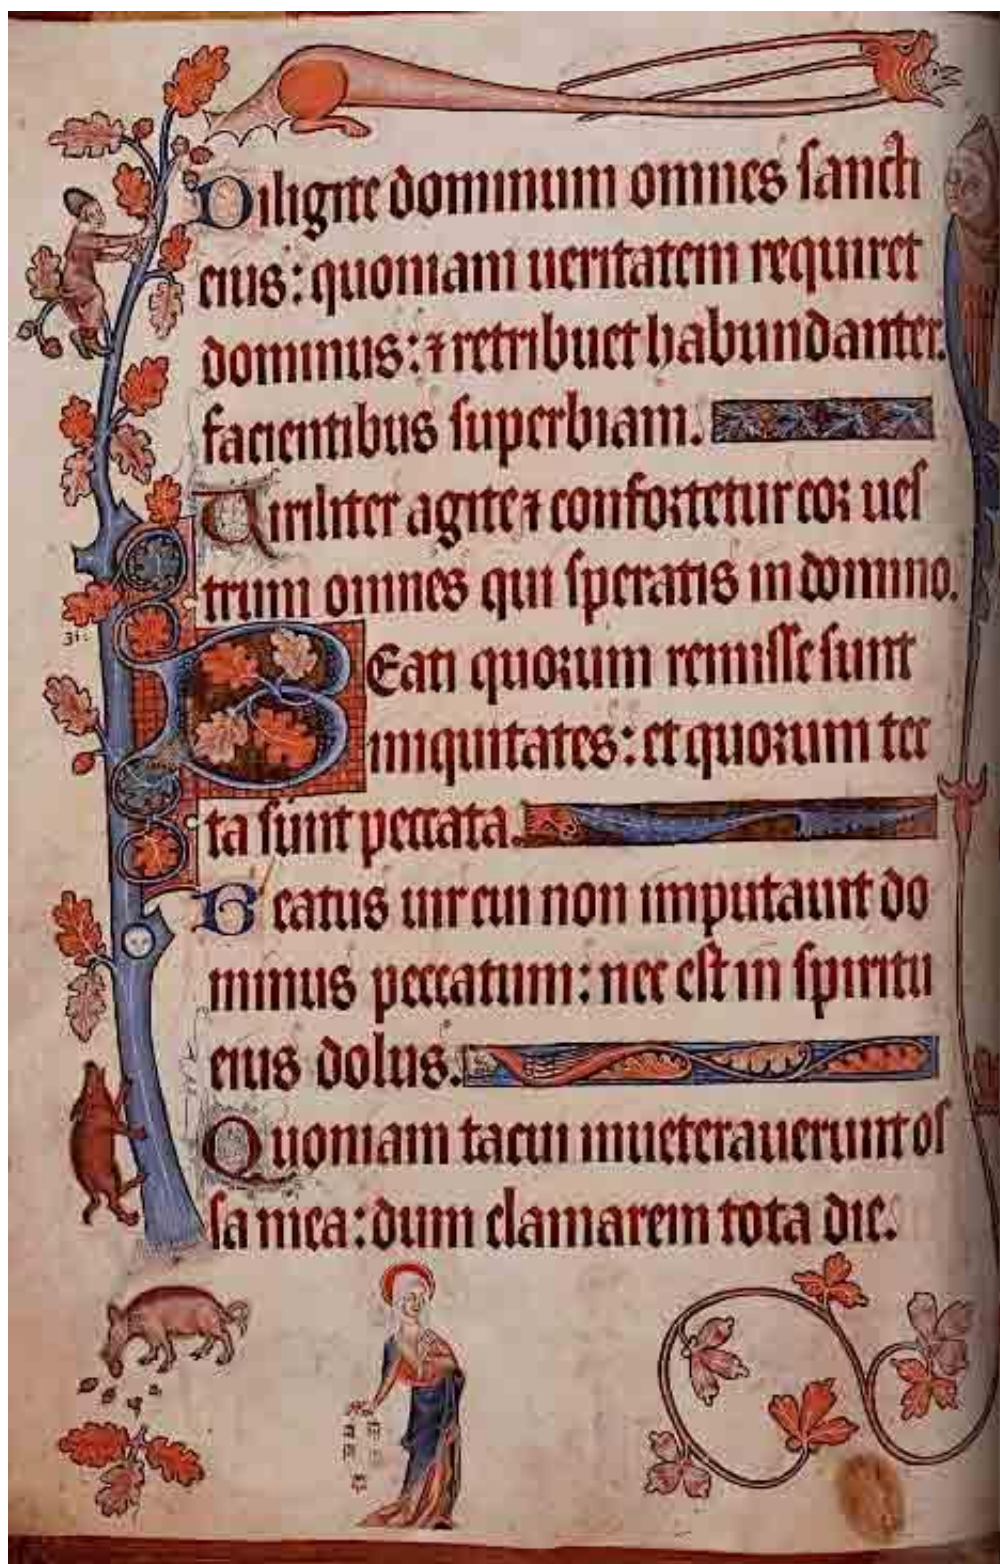 Diligite dominum omnes sancti
eius: quoniam ueritatem requiret
dominus: ⁊ retribuet habundanter
facientibus superbiam.
Uiriliter agite ⁊ confortetur cor ues
trum omnes qui speratis in domino.
31:
BEati quorum remisse sunt
iniquitates: et quorum tec
ta sunt peccata.
Beatus uir cui non imputauit do
minus peccatum: nec est in spiritu
eius dolus.
Quoniam tacui inueterauerunt os
sa mea: dum clamarem tota die.